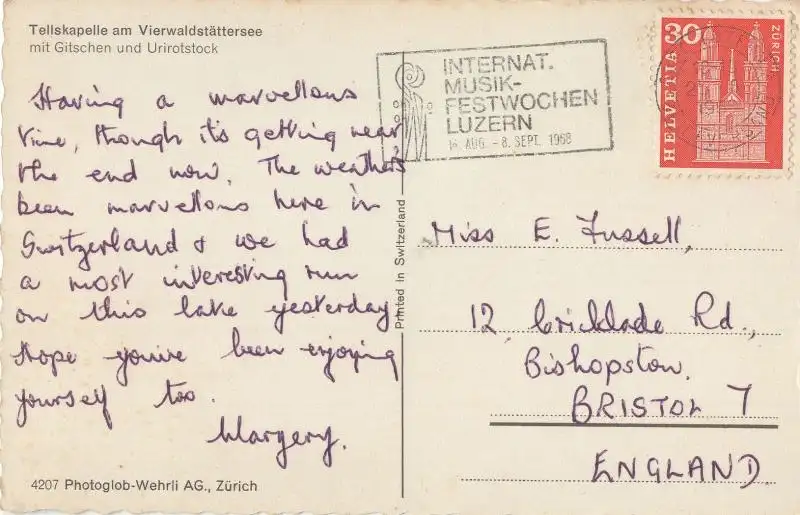 Tellskapelle am Vierwaldstättersee
mit Gitschen und Urirotstock
Having a marvellous
time, though it's getting near
the end now. The weather's
been marvellous here in
Switzerland & we had
a most interesting run
on this lake yesterday
Hope you've been enjoying
yourself too.
Margery.
4207 Photoglob-Wehrli AG., Zürich
Printed in Switzerland
INTERNAT.
MUSIK-
FESTWOCHEN
LUZERN
AUG. - 8. SEPT. 1968
30
HELVETIA
ZÜRICH
Miss E. Fussell,
12, Cricklade Rd.,
Bishopston.
BRISTOL 7
ENGLAND.